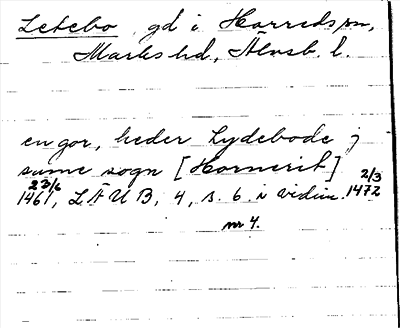 Letebo gd i Horreds sn,
Marks hd, Älvsb. l.
en gor, heder Lydebode j
same sogn [Hornerit]
23/6 2/3
1461, LÄUB, 4, s. 6. i vidim. 1472
nr 4.